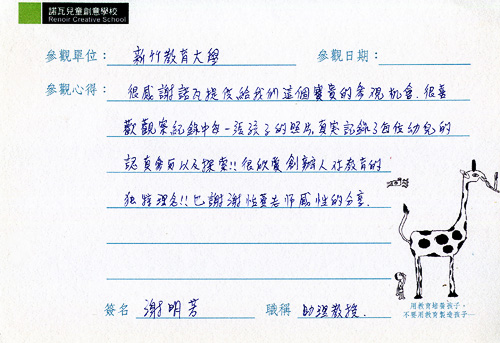 諾瓦兒童創意學校
Renoir Creative School
參觀單位： 新竹教育大學 參觀日期：
參觀心得： 很感謝諾瓦提供給我們這個寶貴的參觀機會. 很喜
歡觀察紀錄中每一張孩子的照片,真實記錄了每位幼兒的
認真學習以及探索!! 很欣賞創辦人在教育的
獨特理念!! 也謝謝怡真老師感性的分享.
簽名 謝明芳 職稱 助理教授.
用教育培養孩子，
不要用教育製造孩子—